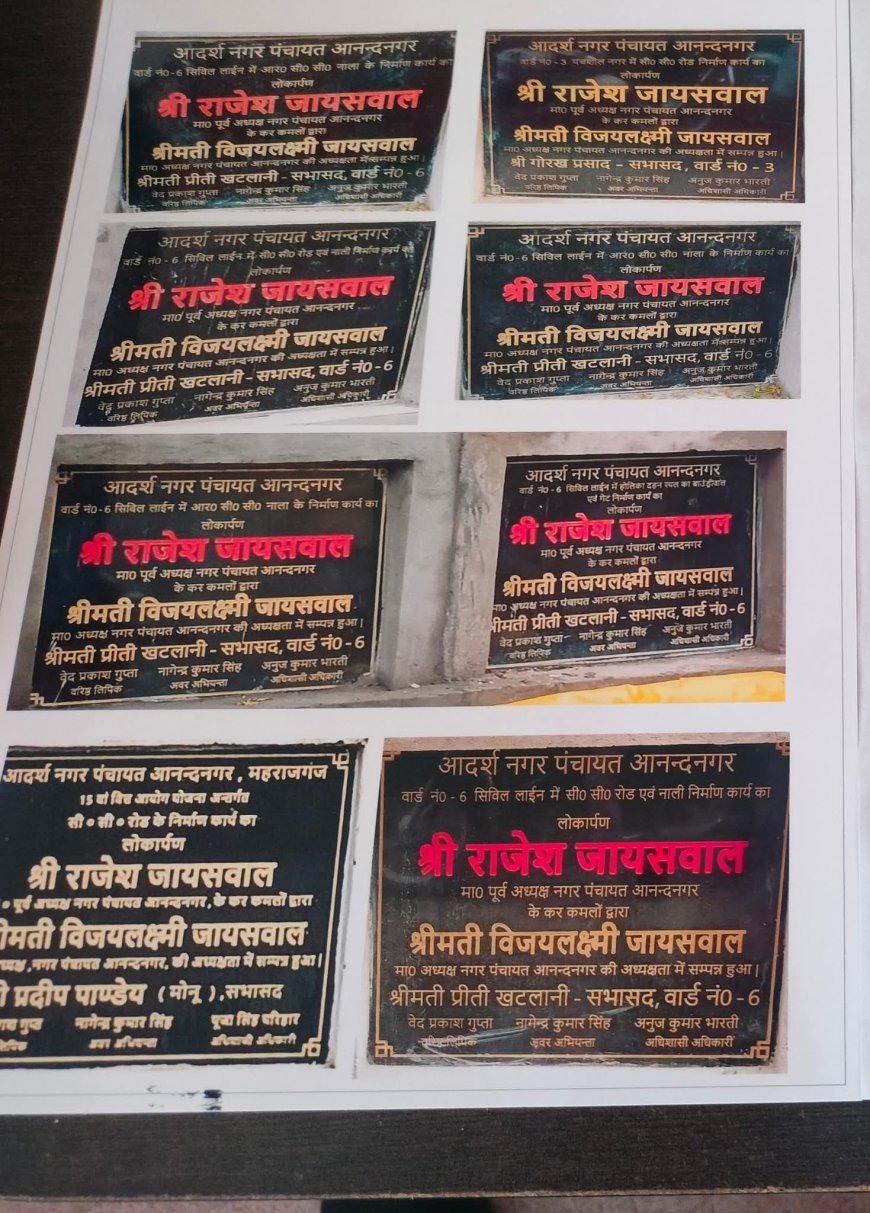 आदर्श नगर पंचायत आनन्दनगर
वार्ड नं0 - 6 सिविल लाईन में आर0 सी0 सी0 नाला के निर्माण कार्य का
लोकार्पण
श्री राजेश जायसवाल
मा0 पूर्व अध्यक्ष नगर पंचायत आनन्दनगर
के कर कमलों द्वारा
श्रीमती विजयलक्ष्मी जायसवाल
मा0 अध्यक्ष नगर पंचायत आनन्दनगर की अध्यक्षता में सम्पन्न हुआ।
श्रीमती प्रीती खटलानी - सभासद, वार्ड नं0 - 6
वेद प्रकाश गुप्ता नागेन्द्र कुमार सिंह अनुज कुमार भारती
वरिष्ठ लिपिक अवर अभियन्ता अधिशासी अधिकारी
आदर्श नगर पंचायत आनन्दनगर
वार्ड नं0 - 3 पंचशील नगर में सी0 सी0 रोड निर्माण कार्य का
लोकार्पण
श्री राजेश जायसवाल
मा0 पूर्व अध्यक्ष नगर पंचायत आनन्दनगर
के कर कमलों द्वारा
श्रीमती विजयलक्ष्मी जायसवाल
मा0 अध्यक्ष नगर पंचायत आनन्दनगर की अध्यक्षता में सम्पन्न हुआ।
श्री गोरख प्रसाद - सभासद, वार्ड नं0 - 3
वेद प्रकाश गुप्ता नागेन्द्र कुमार सिंह अनुज कुमार भारती
वरिष्ठ लिपिक अवर अभियन्ता अधिशासी अधिकारी
आदर्श नगर पंचायत आनन्दनगर
वार्ड नं0 - 6 सिविल लाईन में सी0 सी0 रोड एवं नाली निर्माण कार्य का
लोकार्पण
श्री राजेश जायसवाल
मा0 पूर्व अध्यक्ष नगर पंचायत आनन्दनगर
के कर कमलों द्वारा
श्रीमती विजयलक्ष्मी जायसवाल
मा0 अध्यक्ष नगर पंचायत आनन्दनगर की अध्यक्षता में सम्पन्न हुआ।
श्रीमती प्रीती खटलानी - सभासद, वार्ड नं0 - 6
वेद प्रकाश गुप्ता नागेन्द्र कुमार सिंह अनुज कुमार भारती
वरिष्ठ लिपिक अवर अभियन्ता अधिशासी अधिकारी
आदर्श नगर पंचायत आनन्दनगर
वार्ड नं0 - 6 सिविल लाईन में आर0 सी0 सी0 नाला के निर्माण कार्य का
लोकार्पण
श्री राजेश जायसवाल
मा0 पूर्व अध्यक्ष नगर पंचायत आनन्दनगर
के कर कमलों द्वारा
श्रीमती विजयलक्ष्मी जायसवाल
मा0 अध्यक्ष नगर पंचायत आनन्दनगर की अध्यक्षता में सम्पन्न हुआ।
श्रीमती प्रीती खटलानी - सभासद, वार्ड नं0 - 6
वेद प्रकाश गुप्ता नागेन्द्र कुमार सिंह अनुज कुमार भारती
वरिष्ठ लिपिक अवर अभियन्ता अधिशासी अधिकारी
आदर्श नगर पंचायत आनन्दनगर
वार्ड नं0 - 6 सिविल लाईन में आर0 सी0 सी0 नाला के निर्माण कार्य का
लोकार्पण
श्री राजेश जायसवाल
मा0 पूर्व अध्यक्ष नगर पंचायत आनन्दनगर
के कर कमलों द्वारा
श्रीमती विजयलक्ष्मी जायसवाल
मा0 अध्यक्ष नगर पंचायत आनन्दनगर की अध्यक्षता में सम्पन्न हुआ।
श्रीमती प्रीती खटलानी - सभासद, वार्ड नं0 - 6
वेद प्रकाश गुप्ता नागेन्द्र कुमार सिंह अनुज कुमार भारती
वरिष्ठ लिपिक अवर अभियन्ता अधिशासी अधिकारी
आदर्श नगर पंचायत आनन्दनगर
वार्ड नं0 - 6 सिविल लाईन में होलिका दहन स्थल का बाउंड्रीवाल
एवं गेट निर्माण कार्य का
लोकार्पण
श्री राजेश जायसवाल
मा0 पूर्व अध्यक्ष नगर पंचायत आनन्दनगर
के कर कमलों द्वारा
श्रीमती विजयलक्ष्मी जायसवाल
मा0 अध्यक्ष नगर पंचायत आनन्दनगर की अध्यक्षता में सम्पन्न हुआ।
श्रीमती प्रीती खटलानी - सभासद, वार्ड नं0 - 6
वेद प्रकाश गुप्ता नागेन्द्र कुमार सिंह अनुज कुमार भारती
वरिष्ठ लिपिक अवर अभियन्ता अधिशासी अधिकारी
आदर्श नगर पंचायत आनन्दनगर, महराजगंज
15 वां वित्त आयोग योजना अन्तर्गत
सी० सी० रोड के निर्माण कार्य का
लोकार्पण
श्री राजेश जायसवाल
पूर्व अध्यक्ष नगर पंचायत आनन्दनगर, के कर कमलों द्वारा
विजयलक्ष्मी जायसवाल
नगर पंचायत आनन्दनगर, की अध्यक्षता में सम्पन्न हुआ।
प्रदीप पाण्डेय (मोनू), सभासद
गुप्त नागेन्द्र कुमार सिंह पूजा सिंह परिहार
अवर अभियन्ता अधिशासी अधिकारी
आदर्श नगर पंचायत आनन्दनगर
वार्ड नं0 - 6 सिविल लाईन में सी0 सी0 रोड एवं नाली निर्माण कार्य का
लोकार्पण
श्री राजेश जायसवाल
मा0 पूर्व अध्यक्ष नगर पंचायत आनन्दनगर
के कर कमलों द्वारा
श्रीमती विजयलक्ष्मी जायसवाल
मा0 अध्यक्ष नगर पंचायत आनन्दनगर की अध्यक्षता में सम्पन्न हुआ।
श्रीमती प्रीती खटलानी - सभासद, वार्ड नं0 - 6
वेद प्रकाश गुप्ता नागेन्द्र कुमार सिंह अनुज कुमार भारती
वरिष्ठ लिपिक अवर अभियन्ता अधिशासी अधिकारी